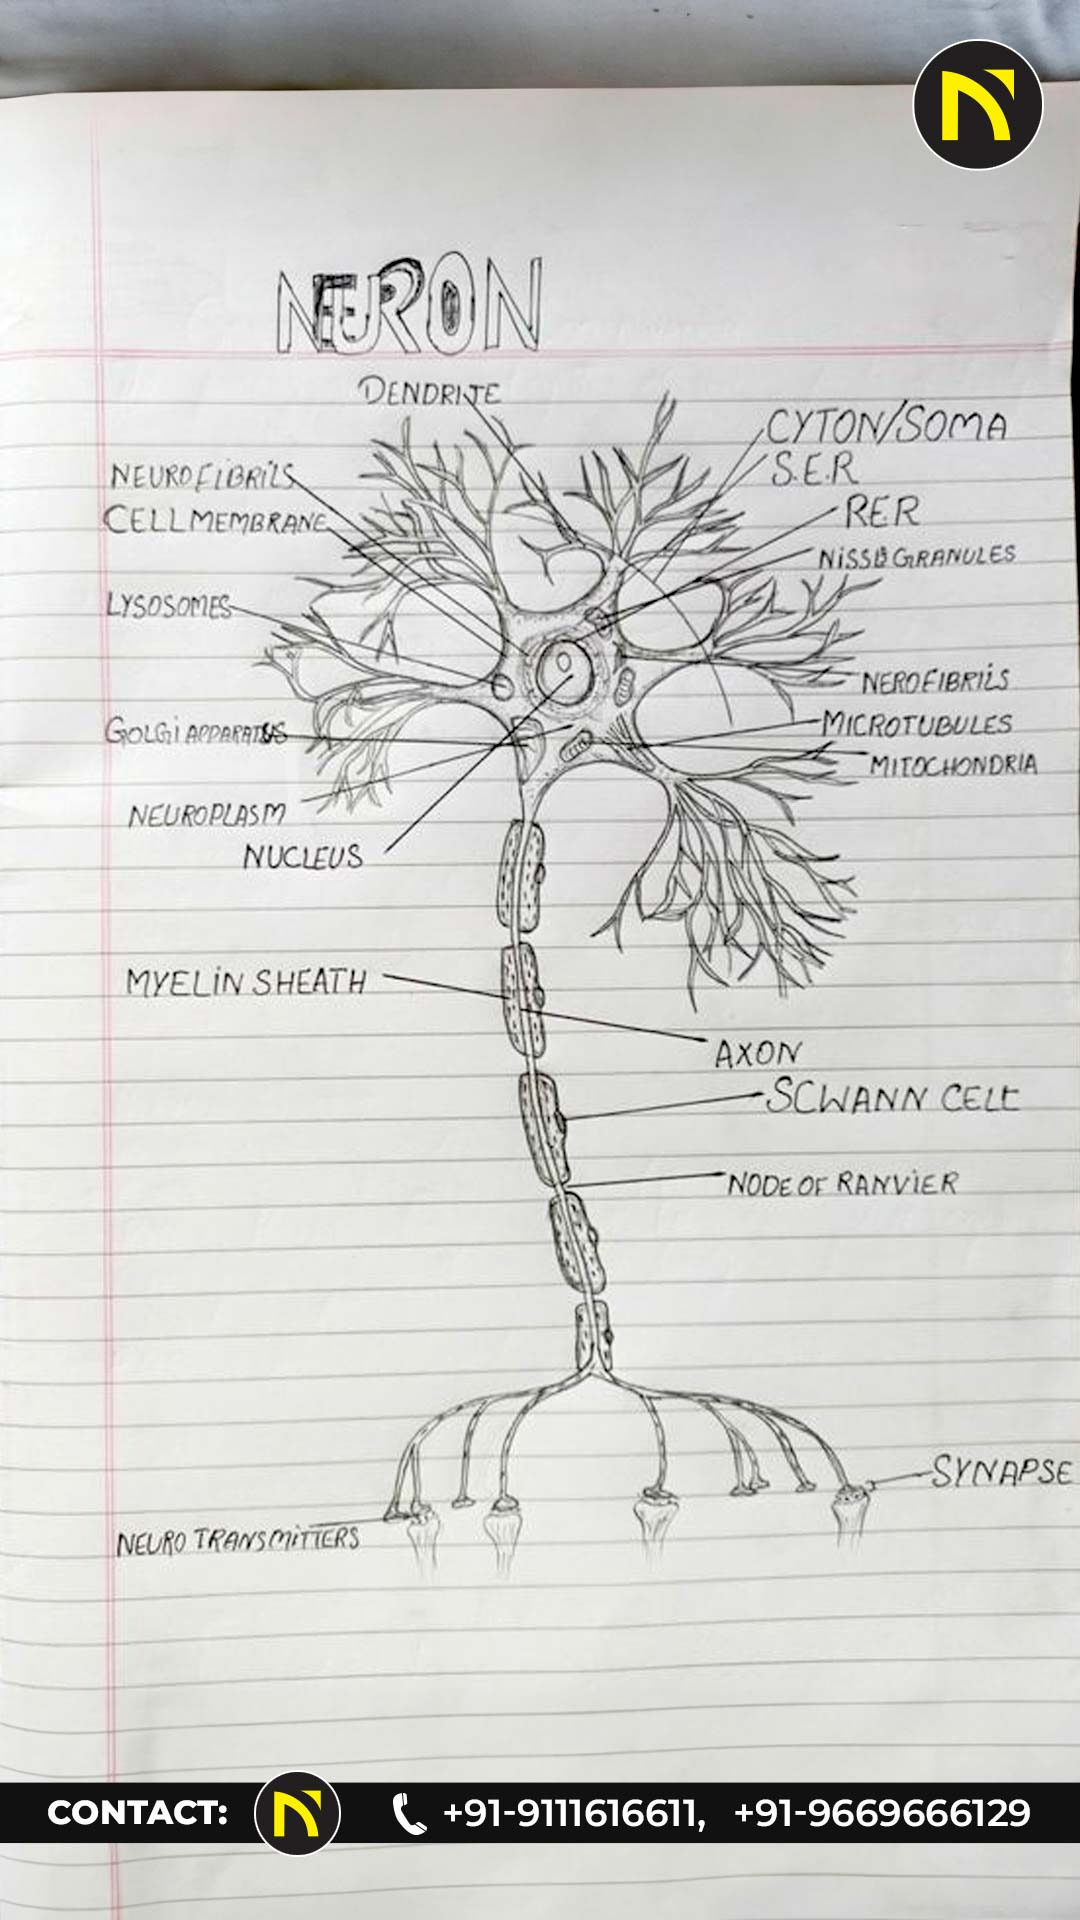 NEURON
DENDRITE
CYTON/SOMA
S.E.R
NEUROFIBRILS
CELL MEMBRANE
RER
NISSL GRANULES
LYSOSOMES
NEROFIBRILS
GOLGI APPARATUS
MICROTUBULES
MITOCHONDRIA
NEUROPLASM
NUCLEUS
MYELIN SHEATH
AXON
SCWANN CELL
NODE OF RANVIER
SYNAPSE
NEURO TRANSMITTERS
CONTACT: N +91-9111616611, +91-9669666129